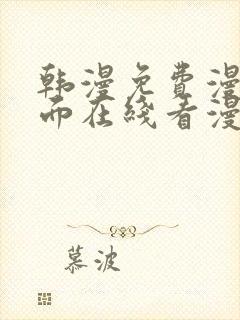 韩漫免费漫
而在线看漫
慕波